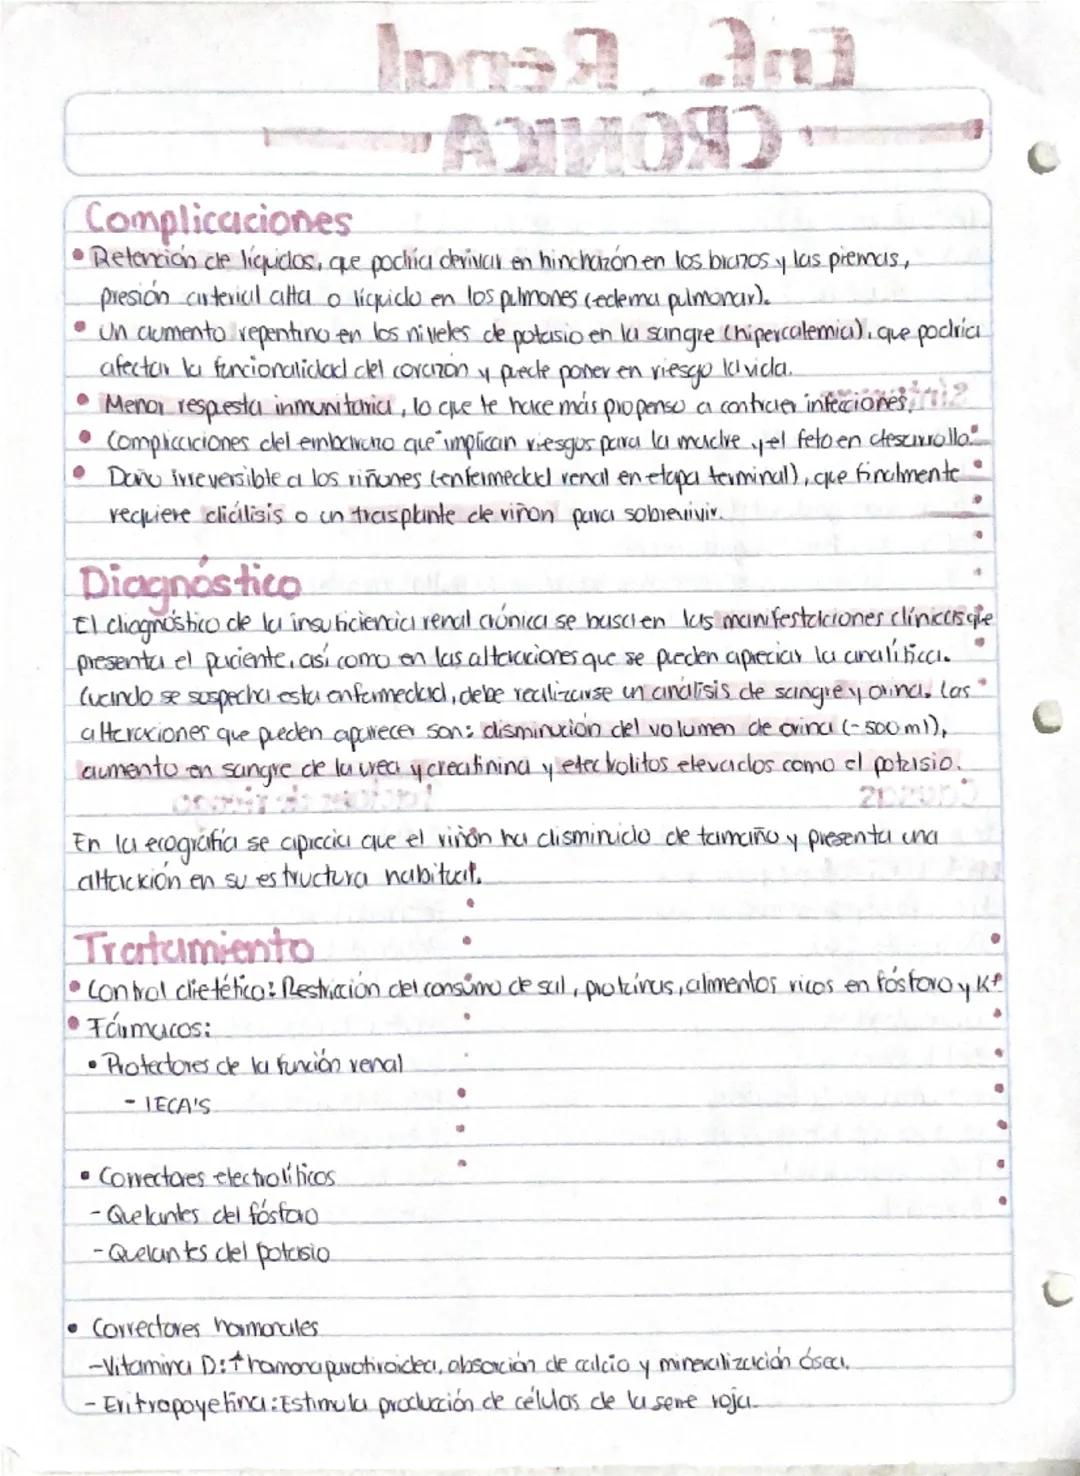 Enf. Renal
CRÓNICA
Complicaciones
• Retención de líquidos, que podría derivar en hinchazón en los brazos y las piernas,
presión arterial alta o líquido en los pulmones (edema pulmonar).
• Un aumento repentino en los niveles de potasio en la sangre (hipercalemia), que podría
afectar la funcionalidad del corazón y puede poner en riesgo la vida.
• Menor respuesta inmunitaria, lo que te hace más propenso a contraer infecciones.
• Complicaciones del embarazo que implican riesgos para la madre y el feto en desarrollo.
• Daño irreversible a los riñones (enfermedad renal en etapa terminal), que finalmente
requiere diálisis o un trasplante de riñon para sobrevivir.
Diagnóstico
El diagnóstico de la insuficiencia renal crónica se basa en las manifestaciones clínicas que
presenta el paciente, así como en las alteraciones que se pueden apreciar la analítica.
Cuando se sospecha esta enfermedad, debe realizarse un análisis de sangre y orina. Las
alteraciones que pueden aparecer son: disminución del volumen de orina (-500 ml),
aumento en sangre de la urea y creatinina y electrolitos elevados como el potasio.
Factores de riesgo Causas
En la ecografía se aprecia que el riñón ha disminuido de tamaño y presenta una
alteración en su estructura habitual.
Tratamiento
• Control dietético: Restricción del consumo de sal, proteínas, alimentos ricos en fósforo y K+
• Fármacos:
• Protectores de la función renal
- IECA'S
• Correctores electrolíticos
- Quelantes del fósforo
- Quelantes del potasio
• Correctores hormonales
- Vitamina D: ↑ hormona paratiroidea, absorción de calcio y mineralización ósea.
- Eritropoyetina: Estimula producción de células de la serie roja.